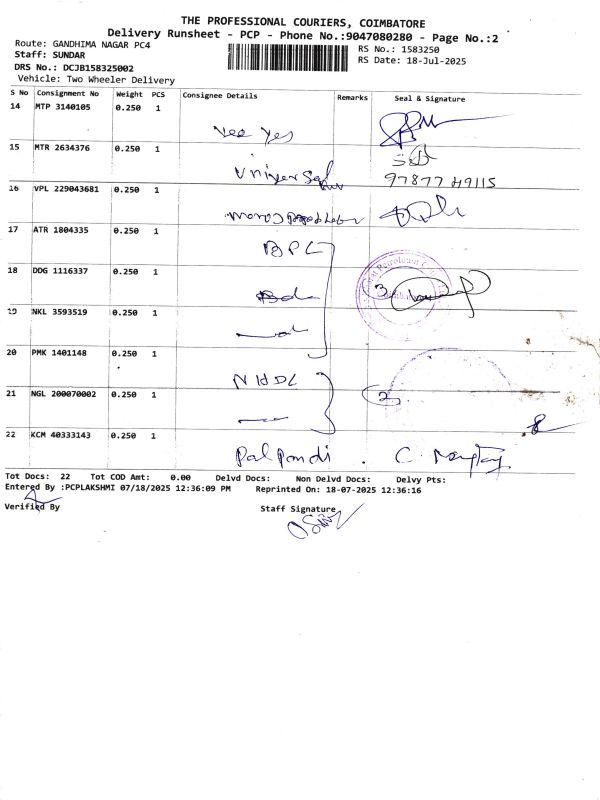 THE PROFESSIONAL COURIERS, COIMBATORE
Delivery Runsheet - PCP - Phone No.:9047080280 - Page No.:2
Route: GANDHIMA NAGAR PC4
RS No.: 1583250
Staff: SUNDAR
RS Date: 18-Jul-2025
DRS No.: DCJB158325002
Vehicle: Two Wheeler Delivery
S No Consignment No Weight PCS Consignee Details Remarks Seal & Signature
14 MTP 3140105 0.250 1
Vee Yes
15 MTR 2634376 0.250 1
97877 49115
16 VPL 229043681 0.250 1
17 ATR 1804335 0.250 1
BPC
18 DDG 1116337 0.250 1
3
19 NKL 3593519 0.250 1
20 PMK 1401148 0.250 1
21 NGL 200070002 0.250 1
2
22 KCM 40333143 0.250 1
Palpandi
Tot Docs: 22 Tot COD Amt: 0.00 Delvd Docs: Non Delvd Docs: Delvy Pts:
Entered By :PCPLAKSHMI 07/18/2025 12:36:09 PM Reprinted On: 18-07-2025 12:36:16
Verified By Staff Signature